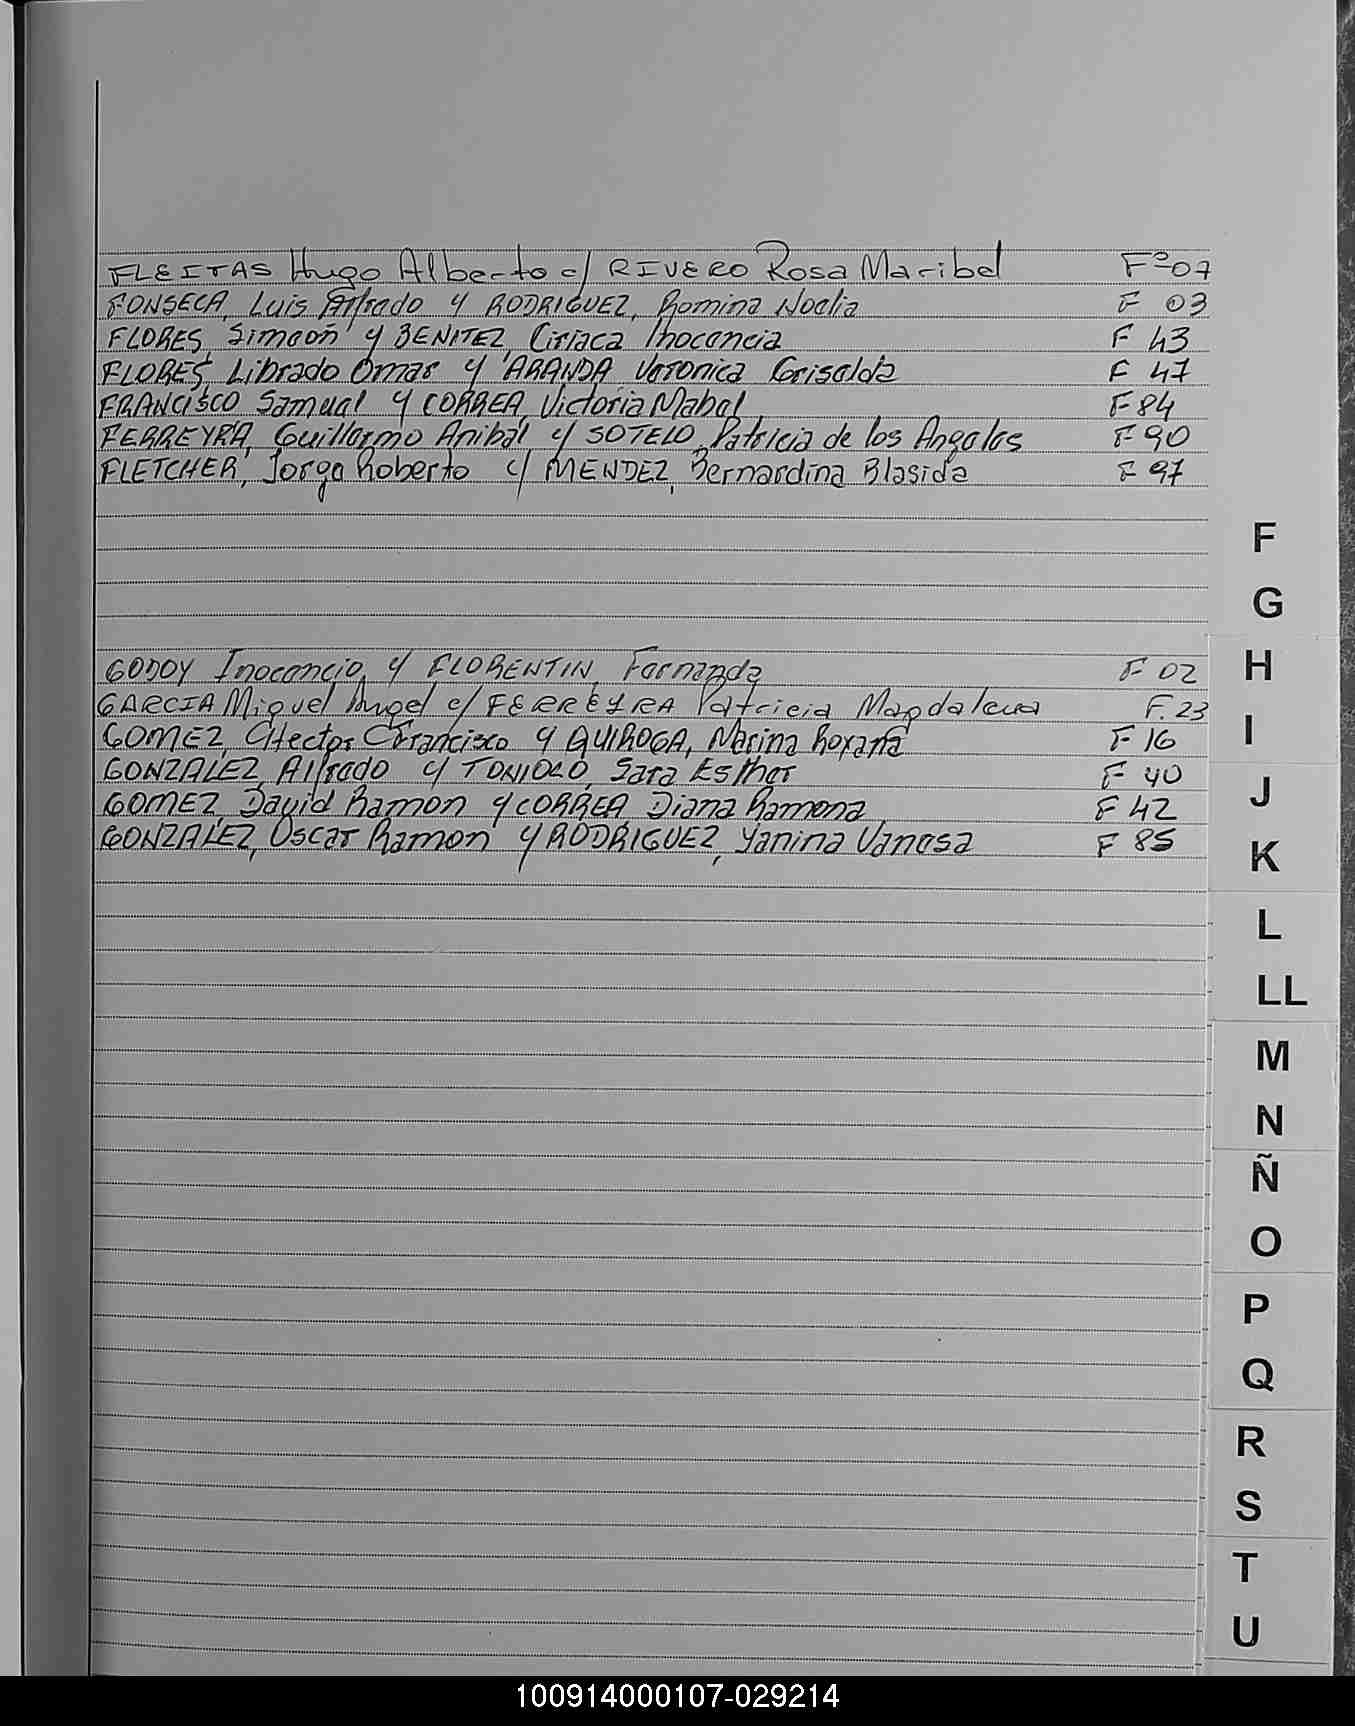 FLEITAS Hugo Alberto c/ RIVERO Rosa Maribel Fº 07
FONSECA, Luis Alfredo y RODRIGUEZ, Romina Noelia F 03
FLORES, Simeon y BENITEZ, Ciriaca Inocencia F 43
FLORES, Librado Omar y ARANDA, Veronica Griselda F 47
FRANCISCO Samuel y CORREA, Victoria Mabel F 84
FERREYRA, Guillermo Anibal y SOTELO, Patricia de los Angeles F 90
FLETCHER, Jorge Roberto c/ MENDEZ, Bernardina Blasida F 97
F
G
GODOY Inocencio y FLORENTIN, Fernanda F 02
GARCIA Miguel Angel c/ FERREYRA Patricia Magdalena F. 23
GOMEZ, Hector Francisco y QUIROGA, Marina Roxana F 16
GONZALEZ, Alfredo y TONIOLO, Sara Esther F 40
GOMEZ, David Ramon y CORREA, Diana Ramona F 42
GONZALEZ, Oscar Ramon y RODRIGUEZ, Yanina Vanesa F 85
H
I
J
K
L
LL
M
N
Ñ
O
P
Q
R
S
T
U
100914000107-029214